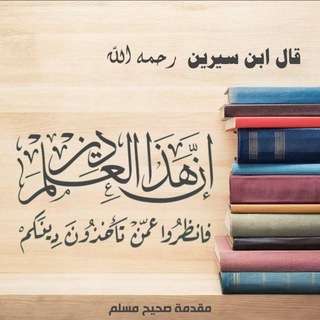 قال ابن سيرين رحمه الله
إِنَّ هَذَا الْعِلْمَ دِينٌ
فَانْظُرُوا عَمَّنْ تَأْخُذُونَ دِينَكُمْ
مقدمة صحيح مسلم